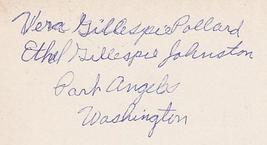 Vera Gillespie Pollard
Ethel Gillespie Johnston
Port Angeles
Washington